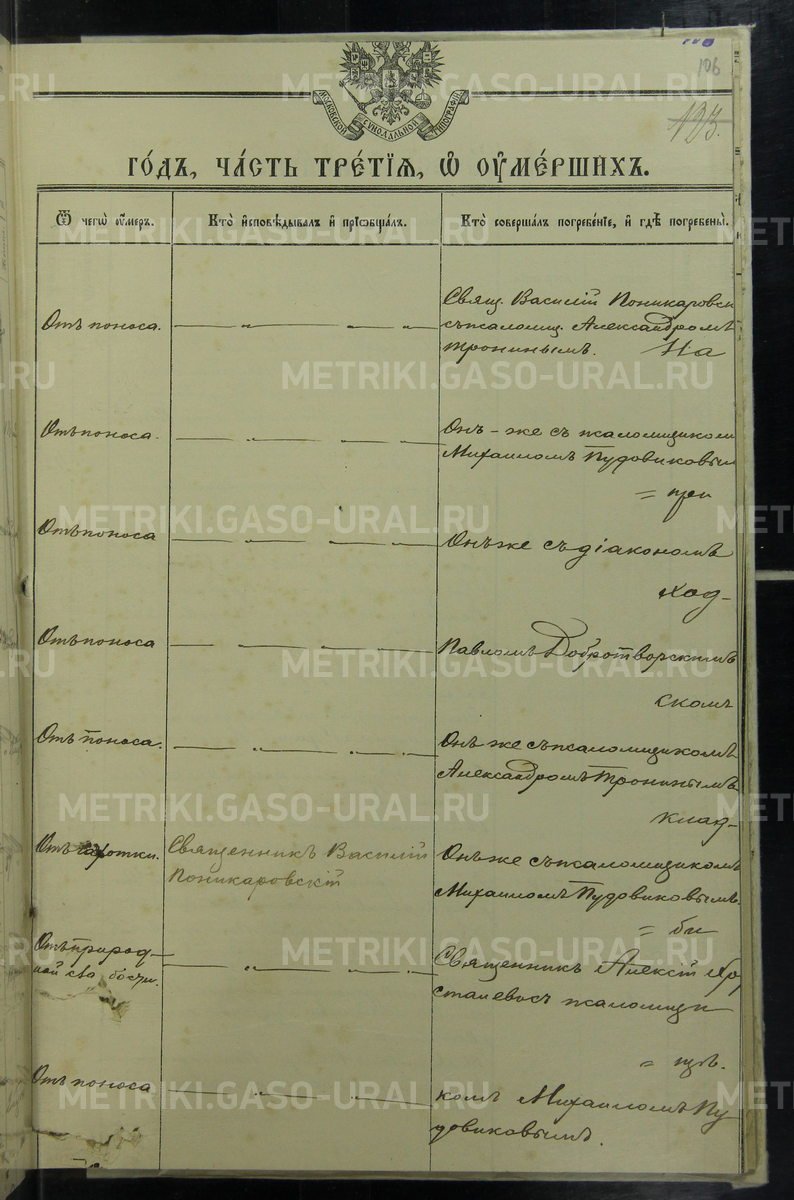 106
193.
МОСКОВСКОЙ СѴНОДАЛЬНОЙ ТИПОГРАФІИ
ГО́ДЪ, ЧА́СТЬ ТРЕ́ТІѦ, Ѡ҆ ОУ҆МЕ́РШИХЪ.
Ѿ чегѡ̀ оу҆́меръ. Кто̀ и҆сповѣ́дывалъ и҆ прїѡбща́лъ. Кто̀ соверша́лъ погребе́нїе, и҆ гдѣ̀ погребены̀.
Отъ поноса.
Свящ. Василій Поникаровск
съ псаломщ. Александромъ
Трониннымъ. На
Отъ поноса.
Онъ-же съ псаломщикомъ
Михаиломъ Пудовиковым
= при
Отъ поноса
Онъ же съ діакономъ
ход-
Отъ поноса
Павломъ Добротворскимъ
скомъ
Отъ поноса.
Онъ же съ псаломщикомъ
Александромъ Трониннымъ
клад-
Отъ чахотки. Священникъ Василій
Поникаровскій
Онъ же съ псаломщикомъ
Михаиломъ Пудовиковымъ.
= би
Отъ природ-
Священникъ Алексій
съ псаломщи
= щѣ.
Отъ поноса
комъ Михаиломъ Пу
довиковымъ.
METRIKI.GASO-URAL.RU